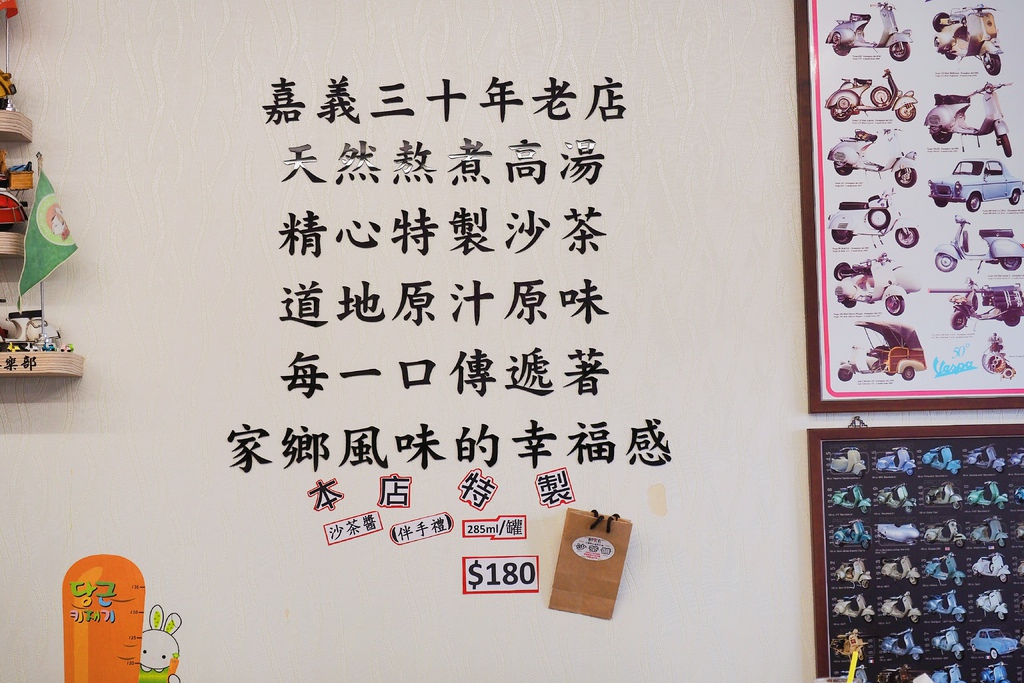 嘉義三十年老店
天然熬煮高湯
精心特製沙茶
道地原汁原味
每一口傳遞著
家鄉風味的幸福感
本店特製
沙茶醬 伴手禮 285ml/罐
$180
당근
키재기
130
120
50°
Vespa